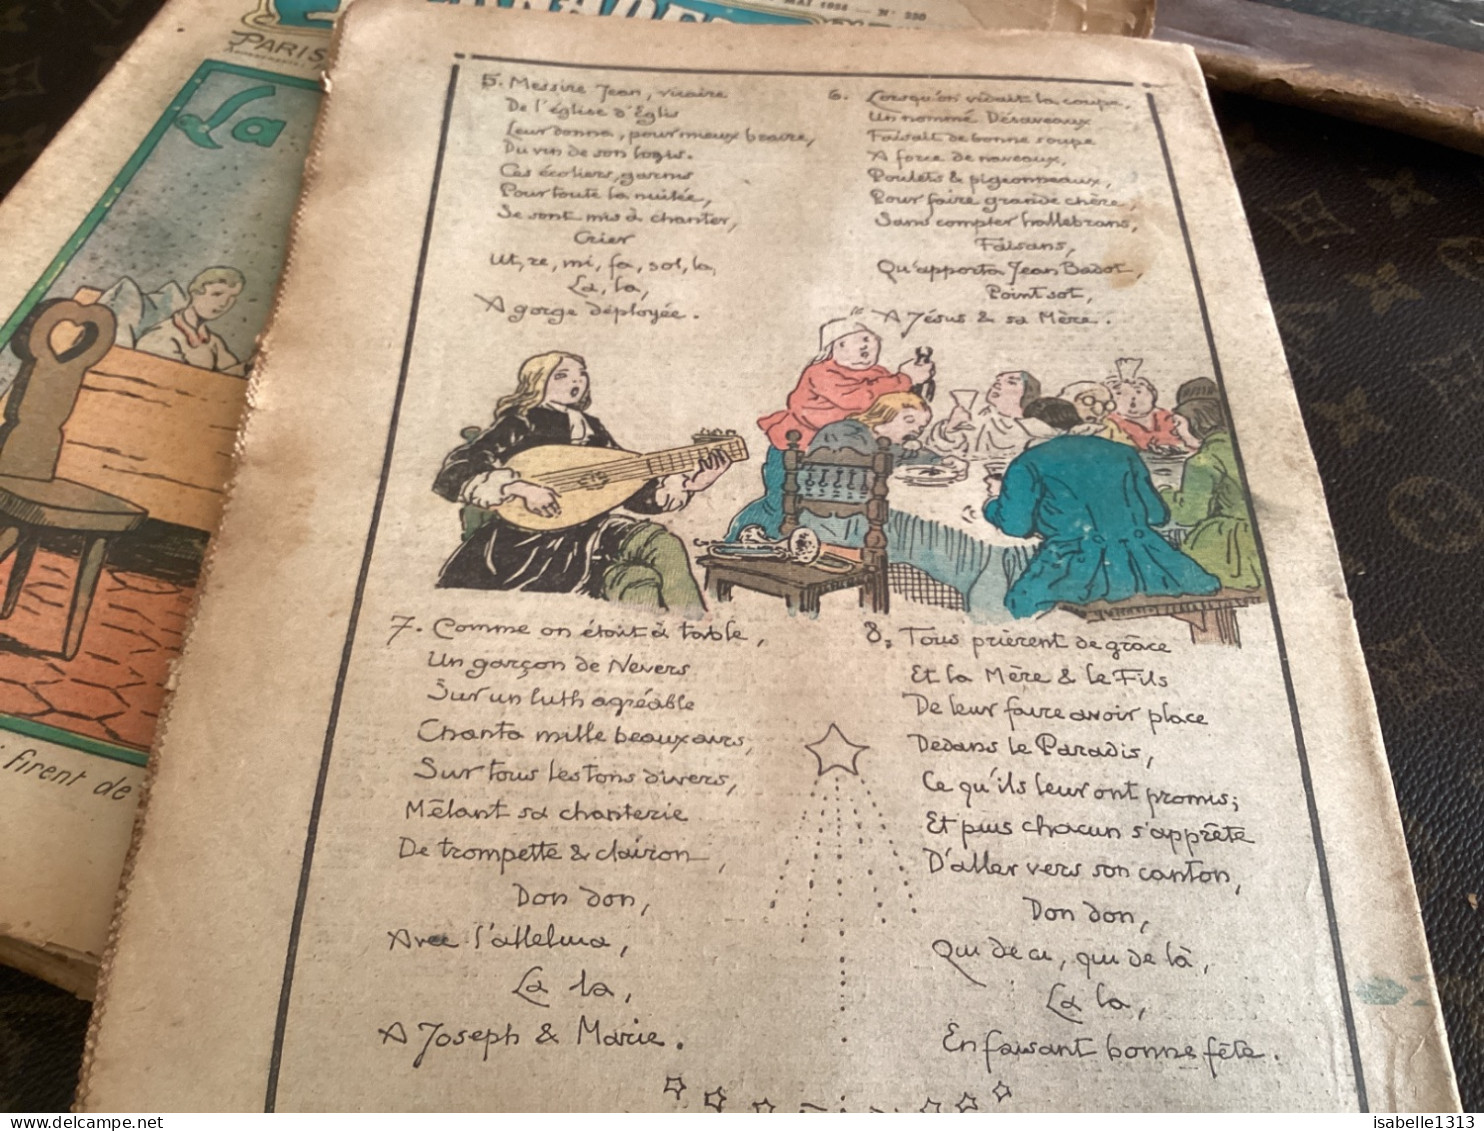 MAI 1955 — N° 550
PARIS
La
firent de
5. Messire Jean, vicaire
De l'église d'Eglis
Leur donna, pour mieux beavre,
Du vin de son logis.
Ces écoliers, garnis
Pour toute la nuitée,
Se sont mis à chanter,
Crier
Ut, re, mi, fa, sol, la,
La, la,
A gorge déployée.
6. Lorsqu'on vidait la coupe,
Un nommé Desaveaux
Faisait de bonne soupe
A force de naveaux,
Poulets & pigeonneaux,
Pour faire grande chère,
Sans compter hallebrans,
Faisans,
Qu'apporta Jean Badot,
Point sot,
A Jésus & sa Mère.
7. Comme on étoit à table,
Un garçon de Nevers
Sur un luth agréable
Chanta mille beaux airs,
Sur tous les tons divers,
Mêlant sa chanterie
De trompette & clairon,
Don don,
Avec l'alleluia,
La la,
A Joseph & Marie.
8. Tous prièrent de grâce
Et la Mère & le Fils
De leur faire avoir place
Dedans le Paradis,
Ce qu'ils leur ont promis;
Et puis chacun s'apprête
D'aller vers son canton,
Don don,
Qui de ci, qui de là,
La la,
En faisant bonne fête.
isabelle1313